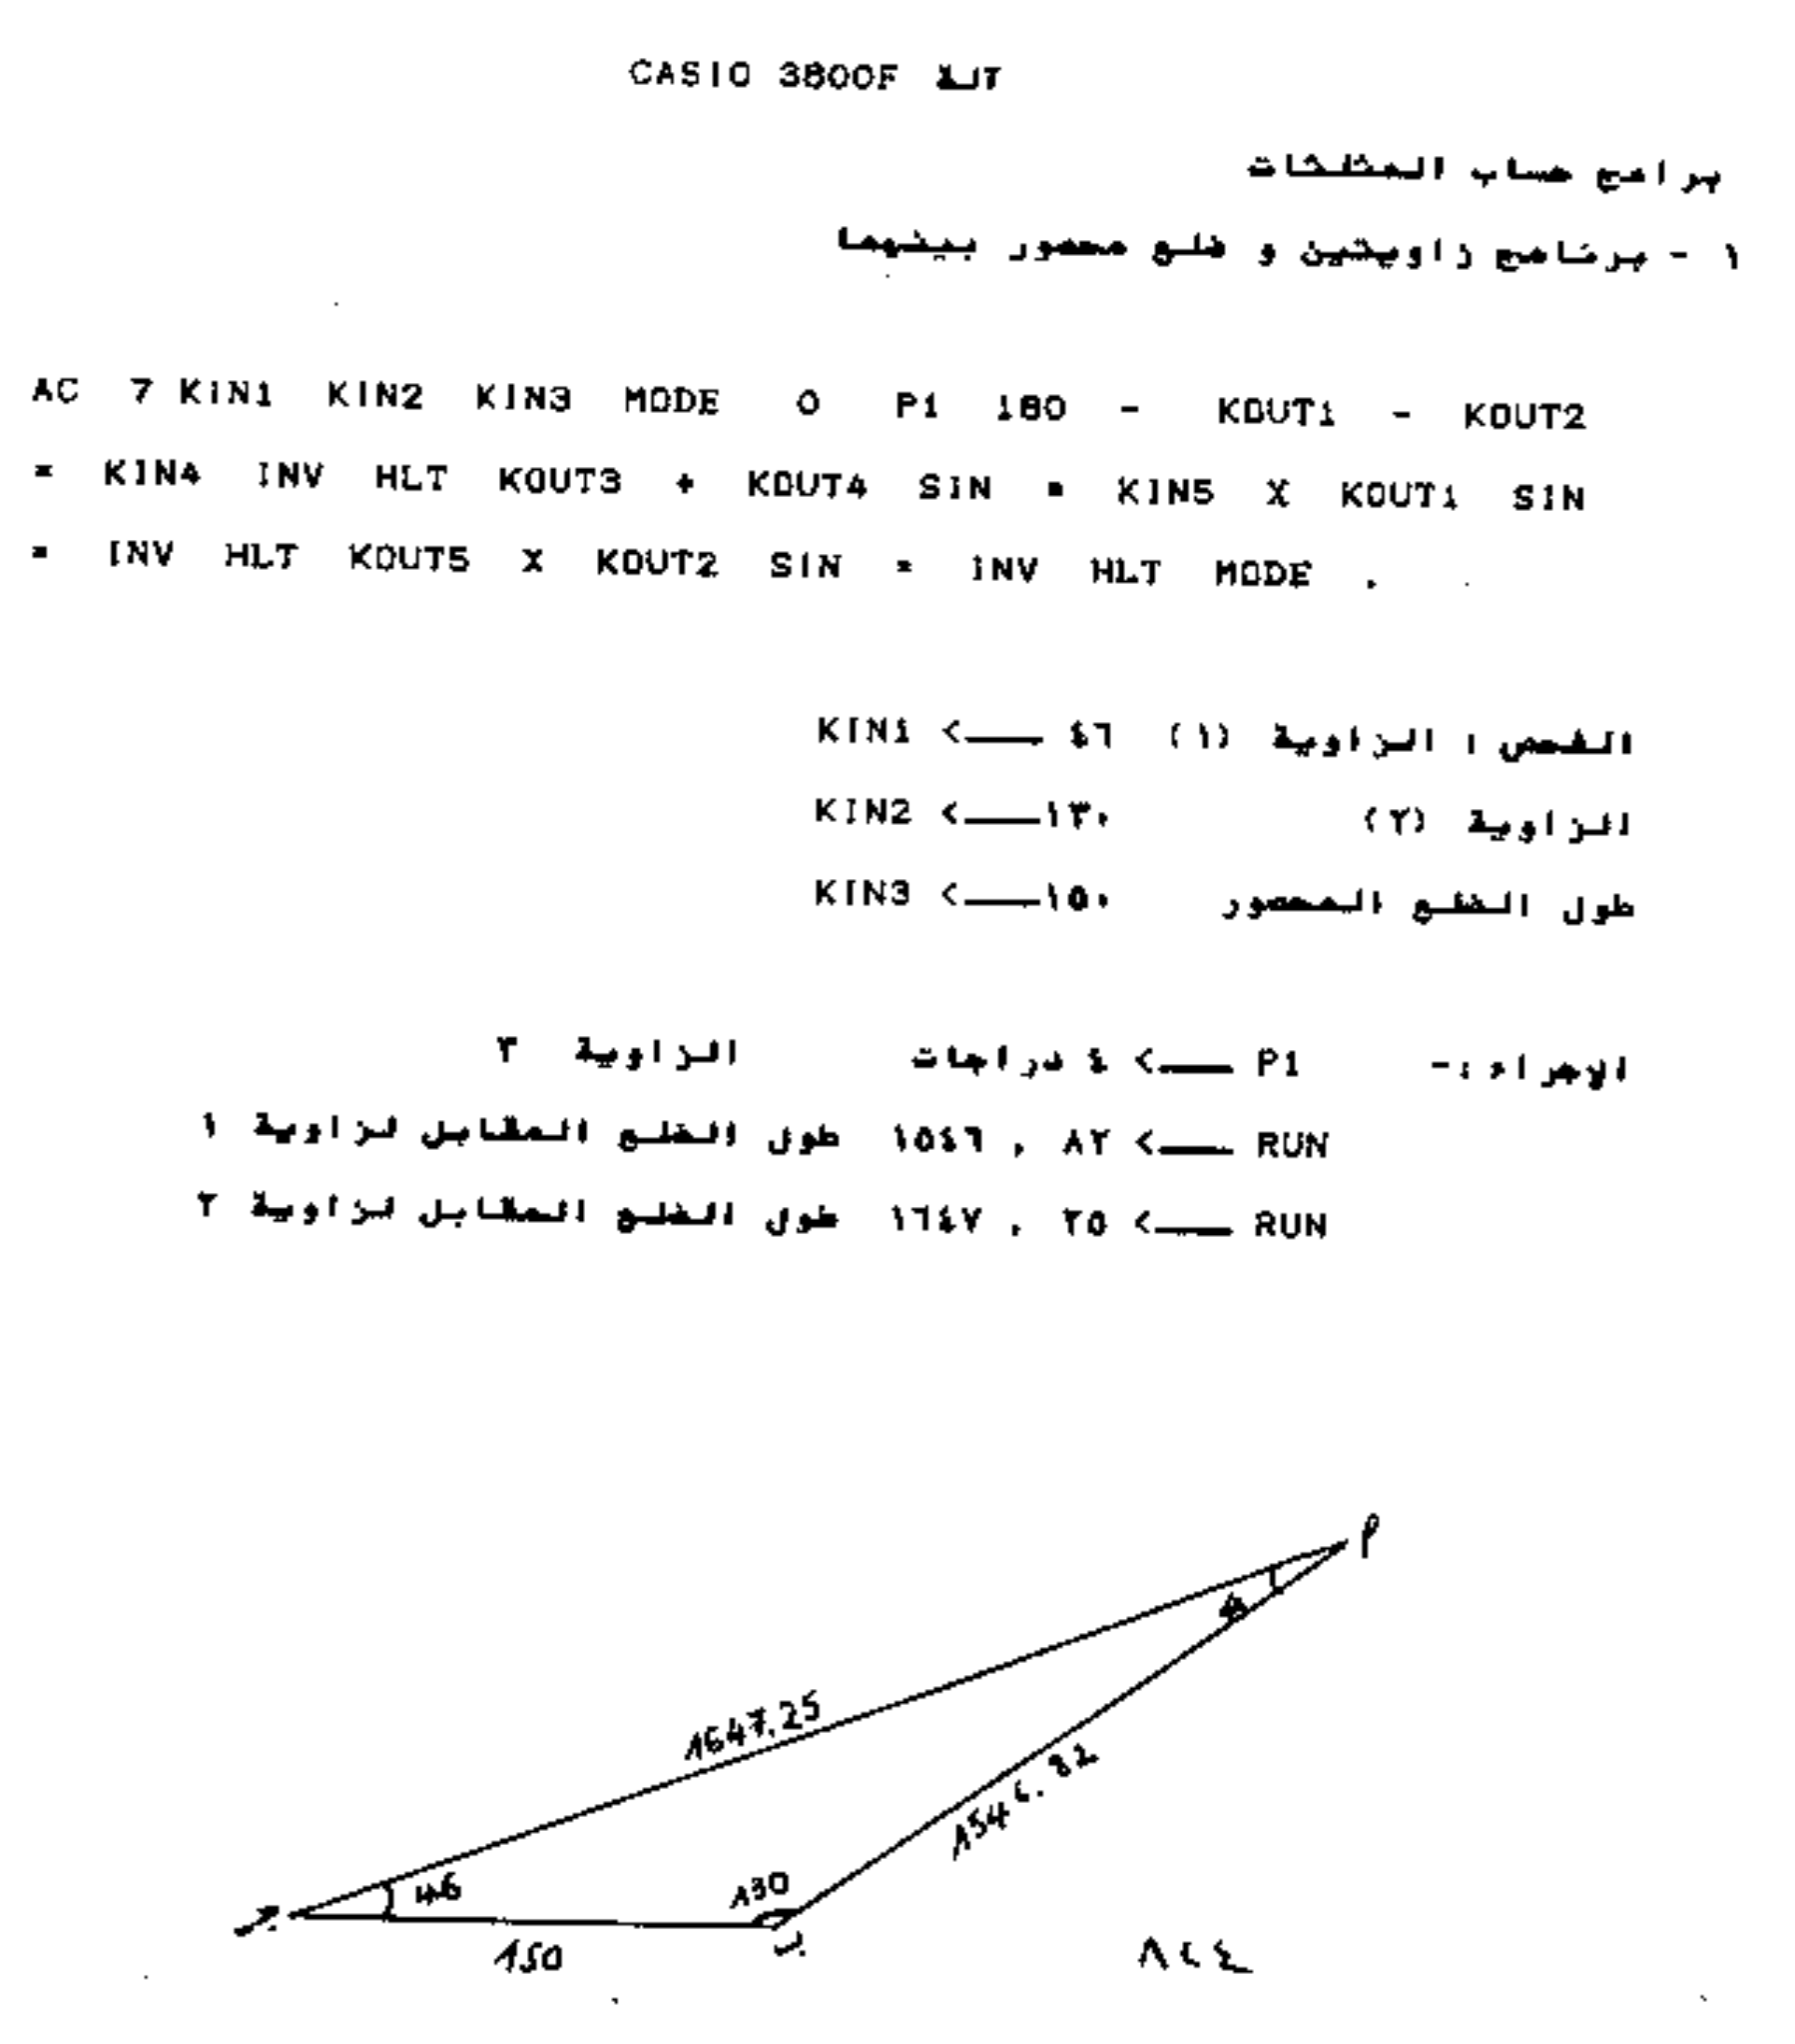 آلة CASIO 3800F
برامج حساب المثلثات
١ - برنامج زاويتين و ضلع محصور بينهما
AC 7 KIN1 KIN2 KIN3 MODE 0 P1 180 - KOUT1 - KOUT2
= KIN4 INV HLT KOUT3 ÷ KOUT4 SIN = KIN5 X KOUT1 SIN
= INV HLT KOUT5 X KOUT2 SIN = INV HLT MODE .
الفحص : الزاوية (١) ٤٦ <—— KIN1
الزاوية (٢) ١٣٠ <—— KIN2
طول الضلع المحصور ١٥٠ <—— KIN3
الإجراء :- P1 ——> ٤ دراجات الزاوية ٣
RUN ——> ١٥٤٦ , ٨٢ طول الضلع المقابل لزاوية ١
RUN ——> ١٦٤٧ , ٢٥ طول الضلع المقابل لزاوية ٢
أ
4
1647.25
1546.82
46
130
جـ
150
ب